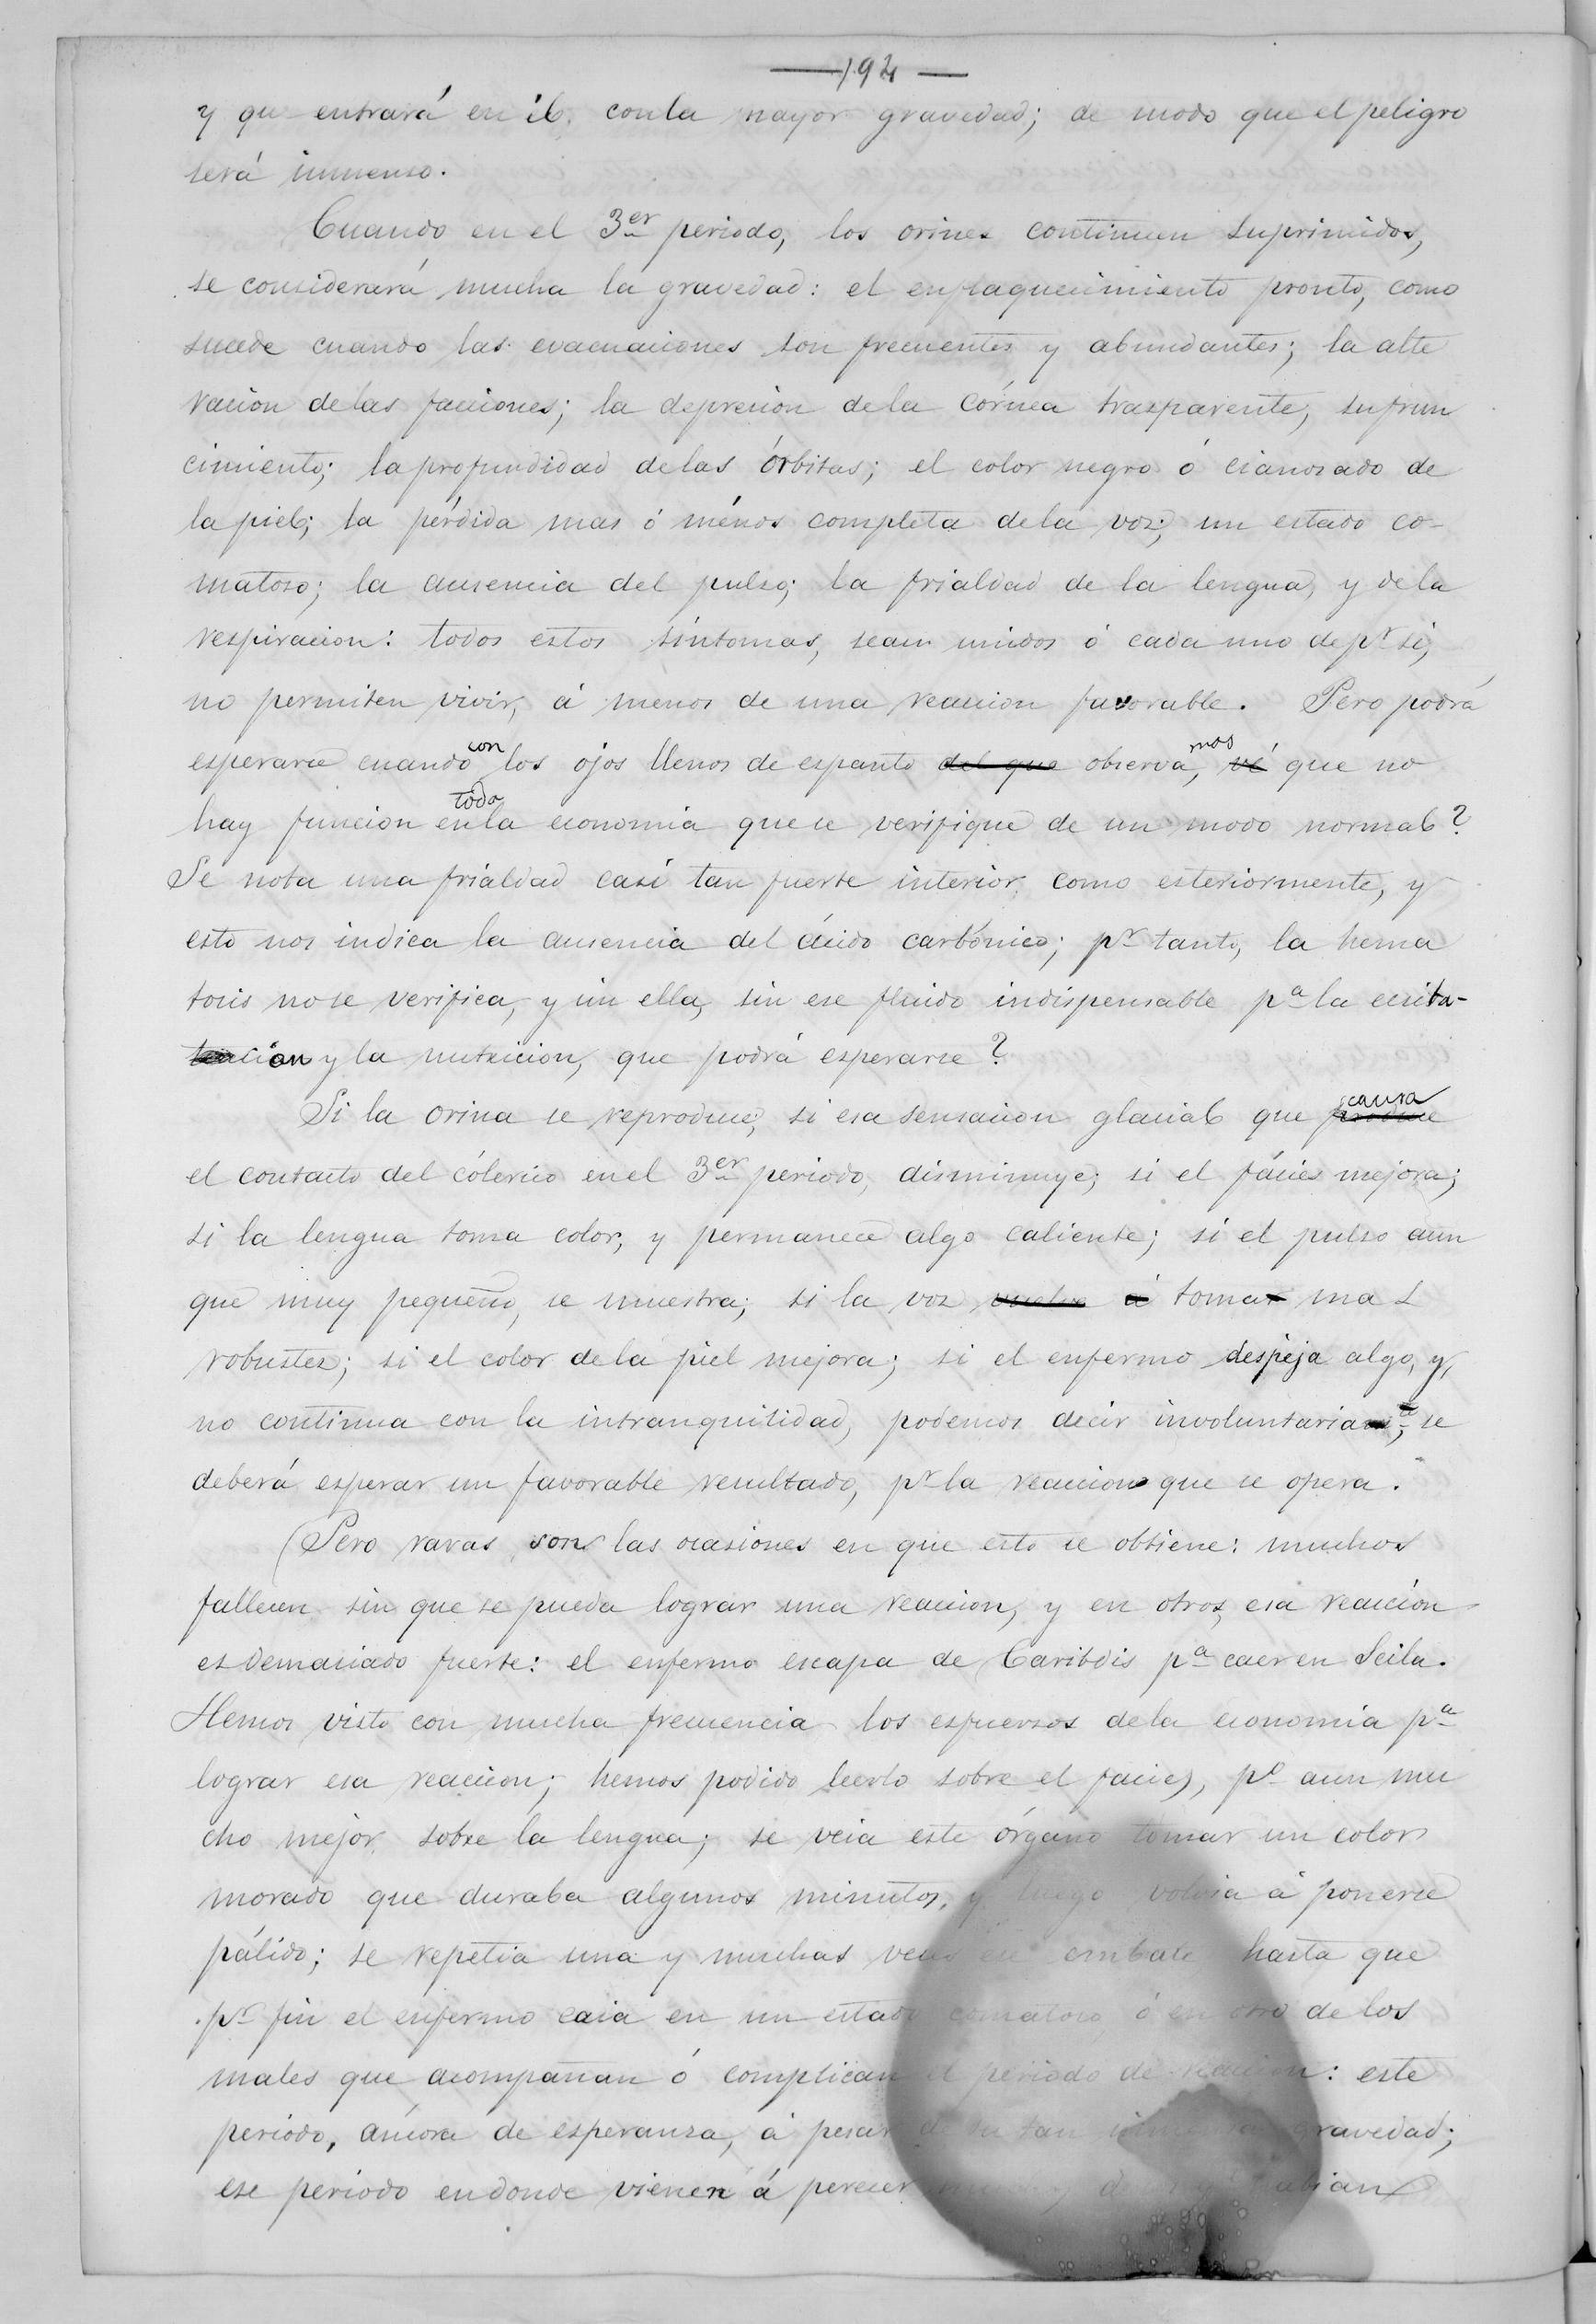 —194—
y que entrará en él, con la mayor gravedad; de modo que el peligro
será inmenso.
Cuando en el 3er periodo, los orines continuen suprimidos,
se considerará mucha la gravedad: el enflaquecimiento pronto, como
sucede cuando las evacuaciones son frecuentes y abundantes; la alte
racion de las facciones; la depresion de la córnea trasparente, su frun
cimiento; la profundidad de las órbitas; el color negro ó cianosado de
la piel; la pérdida mas ó ménos completa de la voz; un estado co-
matoso; la ausencia del pulso; la frialdad de la lengua, y de la
respiracion: todos estos síntomas, sean unidos ó cada uno de pr si,
no permiten vivir, á menos de una reaccion favorable. Pero podrá
esperarse cuando con los ojos llenos de espanto del que observa, mos vé que no
hay funcion en toda la economia que se verifique de un modo normal?
Se nota una frialdad casi tan fuerte interior, como esteriormente, y
esto nos indica la ausencia del ácido carbónico; pr tanto, la hema
tosis no se verifica, y sin ella, sin ese fluido indispensable pa la escita-
cion y la nutricion, que podrá esperarse?
Si la orina se reproduce, si esa sensacion glacial que produce causa
el contacto del cólerico en el 3er periodo, disminuye; si el fácies mejora;
si la lengua toma color, y permanece algo caliente; si el pulso aun
que muy pequeño, se muestra; si la voz vuelve á tomar mas
robustez; si el color de la piel mejora; si el enfermo despeja algo, y,
no continua con la intranquilidad, podemos decir involuntaria; se
deberá esperar un favorable resultado, pr la reaccion que se opera.
(Pero raras son las ocasiones en que esto se obtiene: muchos
fallecen sin que se pueda lograr una reaccion, y en otros, esa reaccion
es demasiado fuerte: el enfermo escapa de Caribdis pa caer en Scila.
Hemos visto con mucha frecuencia los esfuersos de la economia pa
lograr esa reaccion; hemos podido leerlo sobre el facies, po aun mu
cho mejor, sobre la lengua; se veia este órgano tomar un color
morado que duraba algunos minutos, y luego volvia á ponerse
pálido; se repetia una y muchas veces ese embate hasta que
pr fin el enfermo caia en un estado comatoso, ó en otro de los
males que acompañan ó complican el periodo de reaccion: este
periodo, áncora de esperanza, á pesar de su tan inmensa gravedad;
ese periodo en donde vienen á perecer